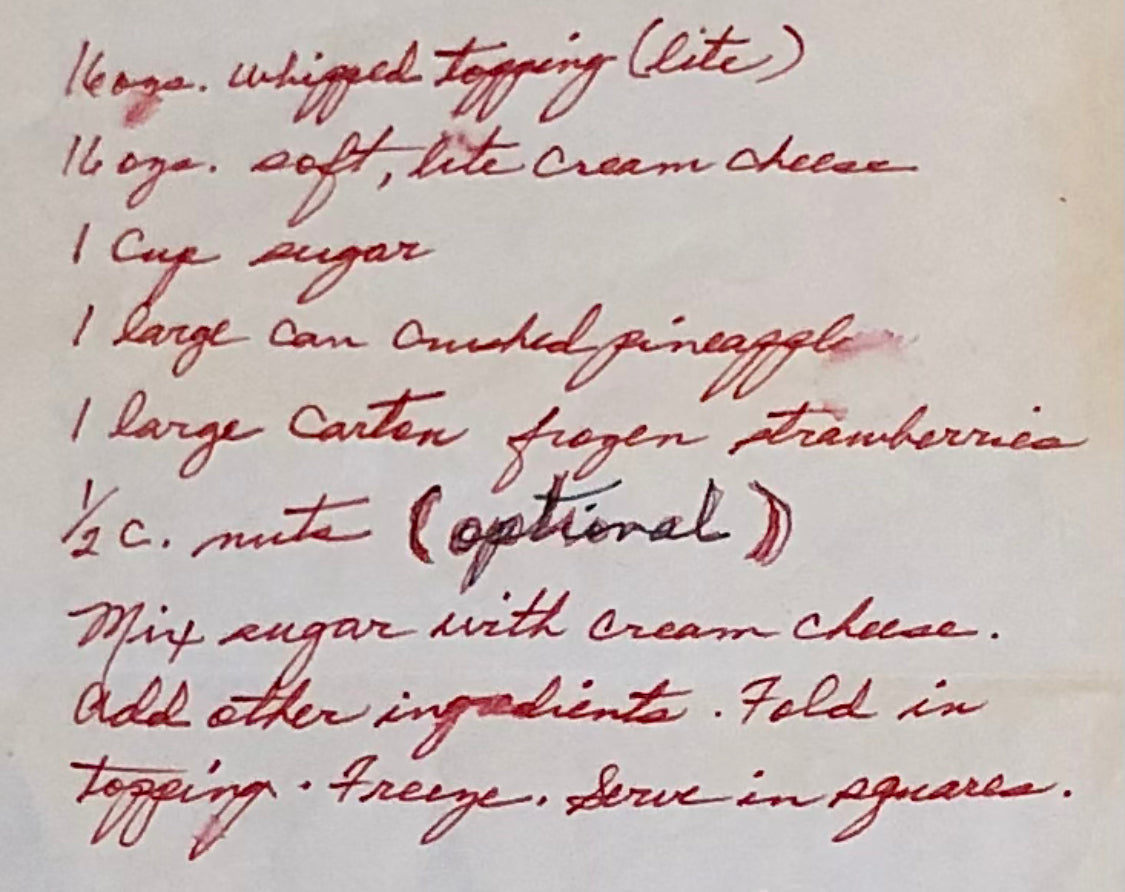 16 ozs. whipped topping (lite)
16 ozs. soft, lite cream cheese
1 Cup sugar
1 large can crushed pineapple
1 large carton frozen strawberries
1/2 c. nuts (optional)
Mix sugar with cream cheese.
Add other ingredients. Fold in
topping. Freeze. Serve in squares.